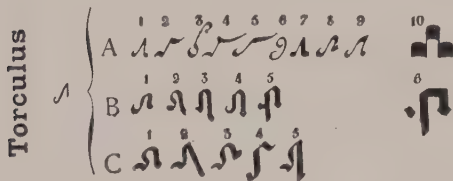 Torculus
1 2 3 4 5 6 7 8 9 10
A
1 2 3 4 5 6
B
1 2 3 4 5
C